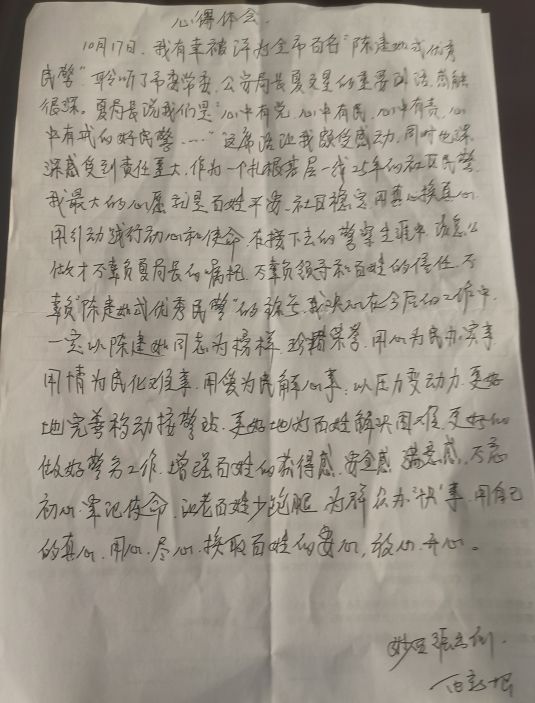 心得体会
10月17日,我有幸被评为全市百名“陈建如式优秀
民警”聆听了市委常委、公安局长夏文星的重要讲话,感触
很深。夏局长说我们是“心中有党、心中有民、心中有责、心
中有戒的好民警……”这席话让我颇受感动,同时也深
深感受到责任重大,作为一个扎根基层一线25年的社区民警,
我最大的心愿就是百姓平安、社区稳定,用真心换真心,
用行动践行初心和使命,在接下去的警察生涯中,该怎么
做才不辜负夏局长的嘱托,不辜负领导和百姓的信任,不
辜负“陈建如式优秀民警”的称号,我决心在今后的工作中,
一定以陈建如同志为榜样,珍藉荣誉,用心为民办实事
用情为民化难事,用俊为民解心事,以压力变动力,更好
地完善移动接警站,更好地为百姓解决困难,更好的
做好警务工作,增强百姓的获得感、安全感、满意感,不忘
初心、牢记使命,让老百姓少跑腿,为群众办“快”事,用自己
的真心、用心、尽心,换取百姓的安心,放心,开心。